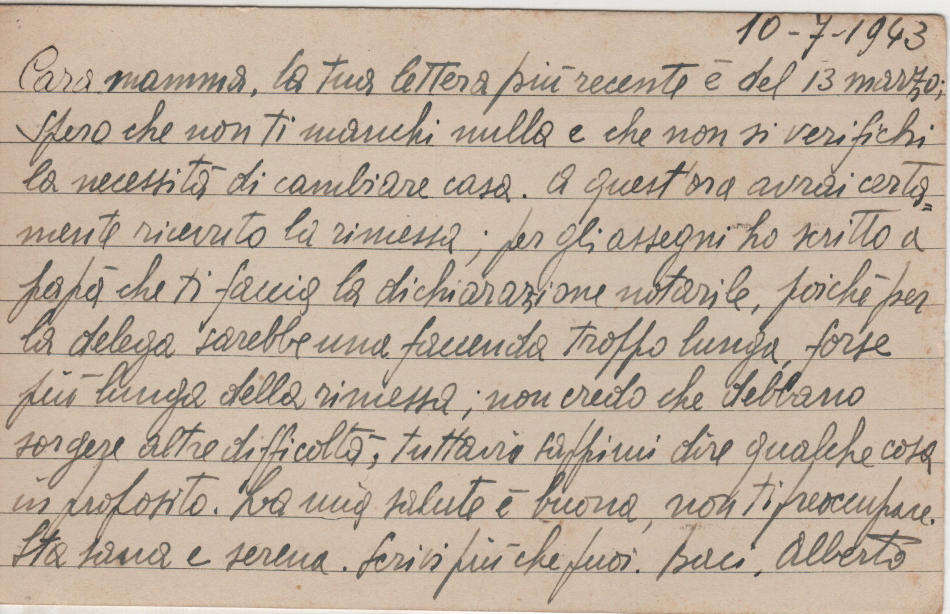 10-7-1943
Cara mamma, la tua lettera più recente è del 13 marzo,
spero che non ti manchi nulla e che non si verifichi
la necessità di cambiare casa. A quest'ora avrai certa=
mente ricevuto la rimessa; per gli assegni ho scritto a
papà che ti faccia la dichiarazione notarile, poichè per
la delega sarebbe una faccenda troppo lunga, forse
più lunga della rimessa; non credo che debbano
sorgere altre difficoltà, tuttavia sappimi dire qualche cosa
in proposito. La mia salute è buona, non ti preoccupare.
Sta sana e serena. Scrivi più che puoi. Baci, Alberto